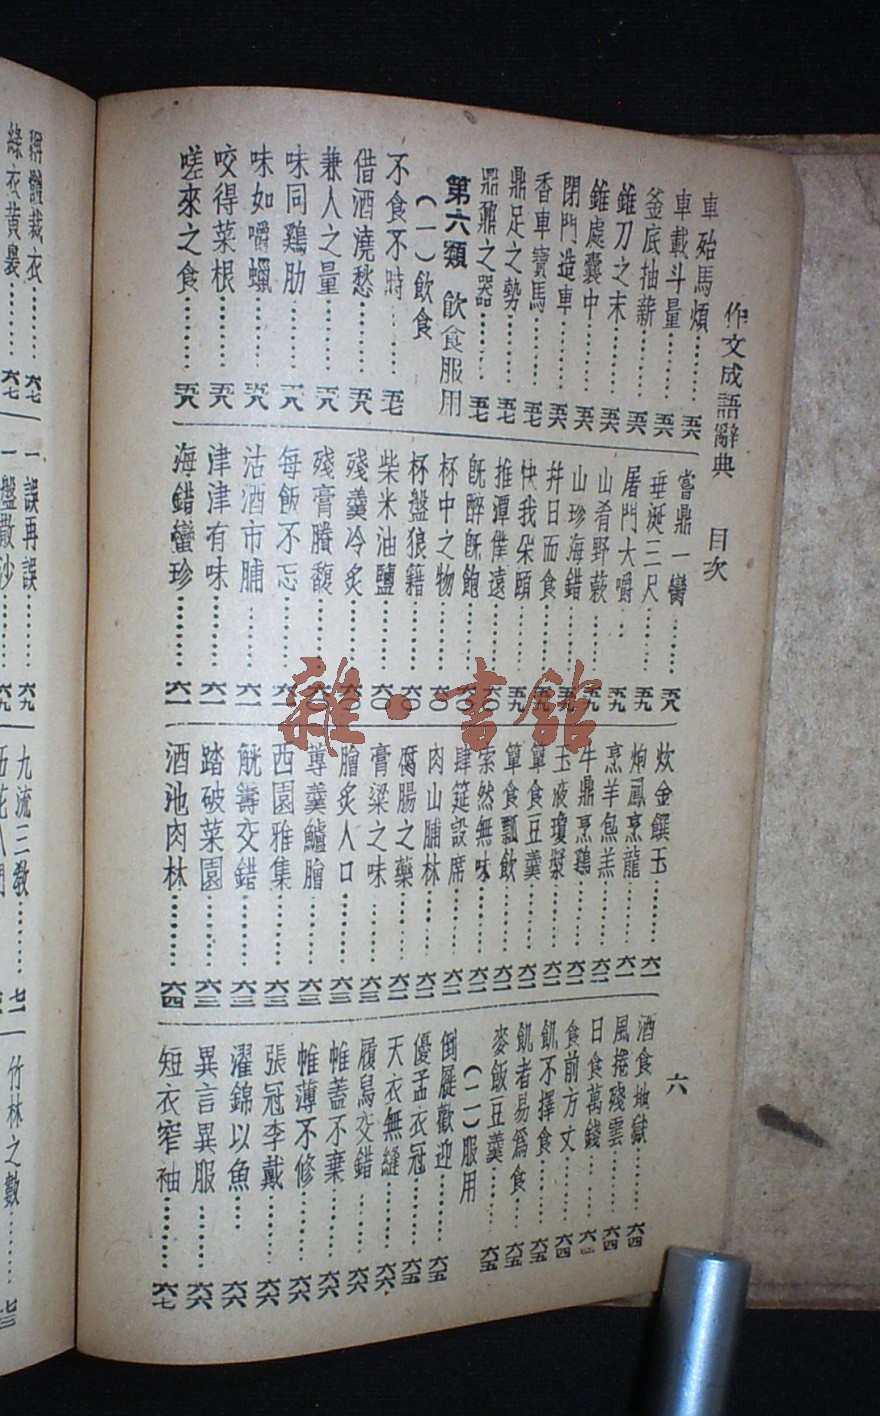 作文成語辭典 目次 六
車殆馬煩………五六
車載斗量………五六
釜底抽薪………五六
錐刀之末………五六
錐處囊中………五六
閉門造車………五六
香車寶馬………五七
鼎足之勢………五七
鼎鼐之器………五七
第六類 飲食服用
（一）飲食
不食不時………五七
借酒澆愁………五八
兼人之量………五八
味同鷄肋………五八
味如嚼蠟………五八
咬得菜根………五八
嗟來之食………五八
嘗鼎一臠………五八
垂涎三尺………五九
屠門大嚼………五九
山肴野蔌………五九
山珍海錯………五九
幷日而食………五九
快我朵頤………五九
推潭僕遠………六〇
旣醉旣飽………六〇
杯中之物………六〇
杯盤狼籍………六〇
柴米油鹽………六〇
殘羹冷炙………六〇
殘膏賸馥………六〇
每飯不忘………六一
沽酒市脯………六一
津津有味………六一
海錯蠻珍………六一
炊金饌玉………六一
炮鳳烹龍………六一
烹羊炰羔………六二
牛鼎烹鷄………六二
玉液瓊漿………六二
簞食豆羹………六二
簞食瓢飲………六二
索然無味………六二
肆筵設席………六二
肉山脯林………六二
腐腸之藥………六二
膏粱之味………六三
膾炙人口………六三
蓴羹鱸膾………六三
西園雅集………六三
觥籌交錯………六三
踏破菜園………六三
酒池肉林………六四
酒食地獄………六四
風捲殘雲………六四
日食萬錢………六四
食前方丈………六四
飢不擇食………六五
飢者易爲食………六五
麥飯豆羹………六五
（二）服用
倒屣歡迎………六五
優孟衣冠………六五
天衣無縫………六六
履舃交錯………六六
帷蓋不棄………六六
帷薄不修………六六
張冠李戴………六六
濯錦以魚………六六
異言異服………六六
短衣窄袖………六七
裁衣………六七
綠衣黃裏………六七
一誤再誤………六九
一盤散沙………六九
九流三敎………七一
竹林之數………七三
雜·書館